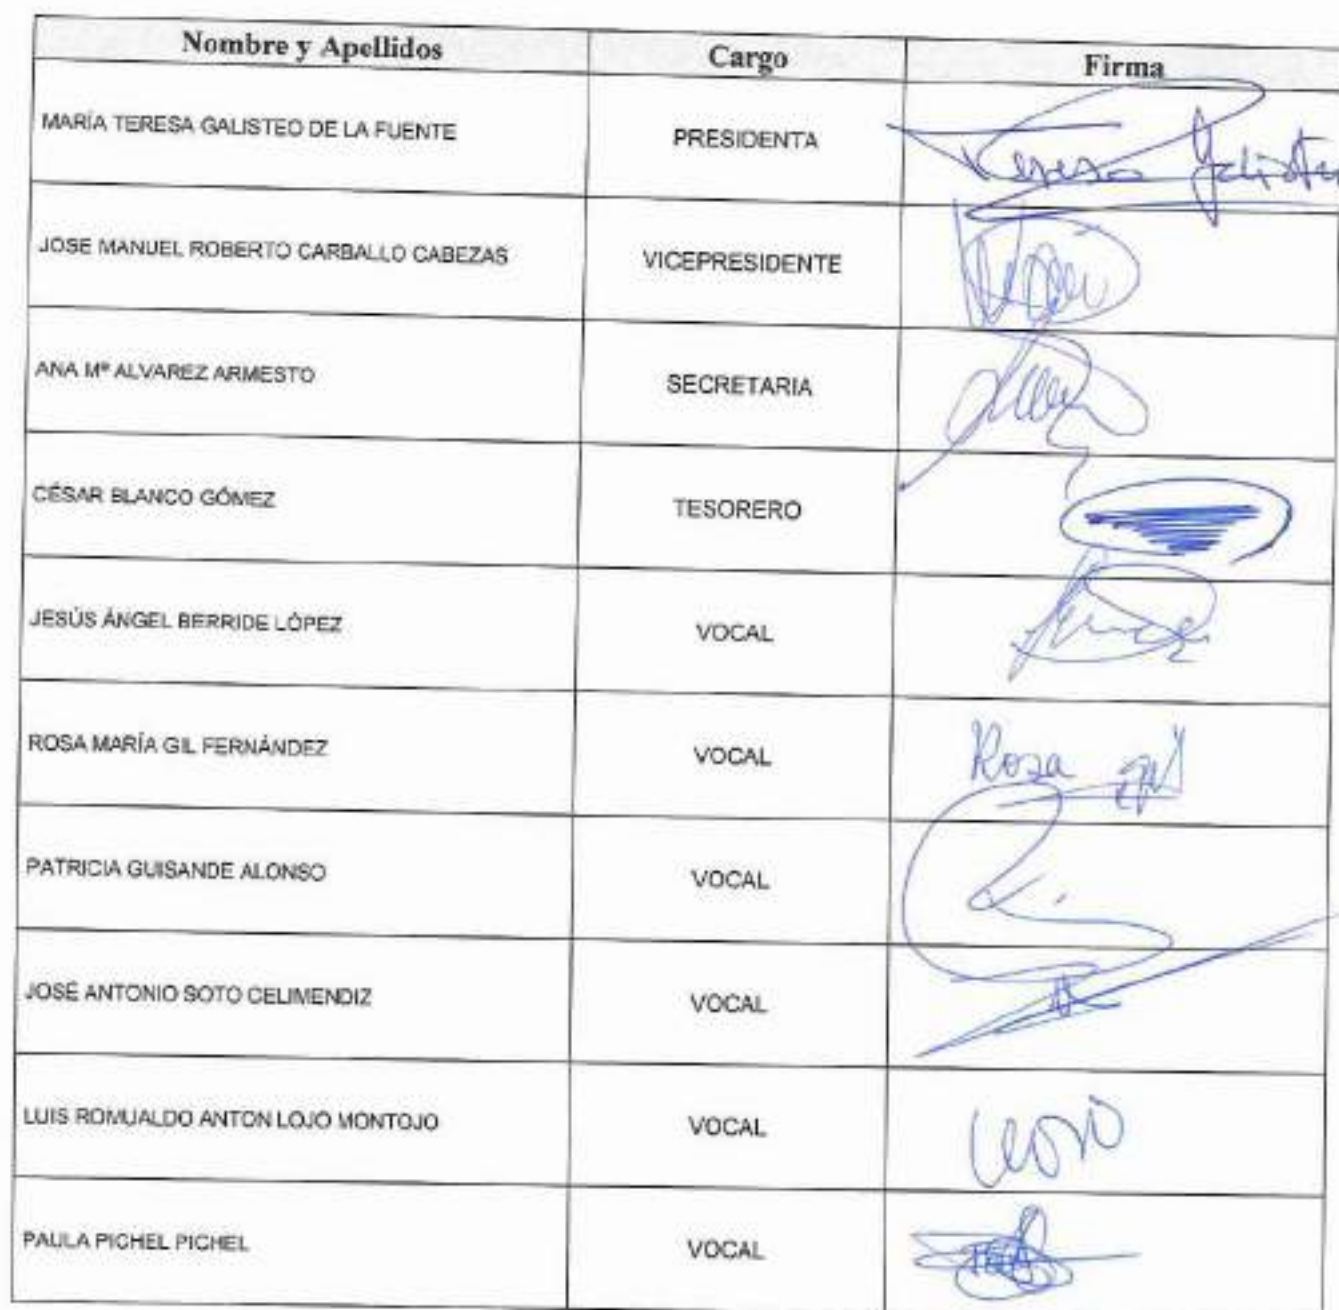 Nombre y Apellidos Cargo Firma
MARÍA TERESA GALISTEO DE LA FUENTE PRESIDENTA Teresa Galisteo
JOSE MANUEL ROBERTO CARBALLO CABEZAS VICEPRESIDENTE
ANA Mª ALVAREZ ARMESTO SECRETARIA
CÉSAR BLANCO GÓMEZ TESORERO
JESÚS ÁNGEL BERRIDE LÓPEZ VOCAL
ROSA MARÍA GIL FERNÁNDEZ VOCAL Rosa Gil
PATRICIA GUISANDE ALONSO VOCAL
JOSÉ ANTONIO SOTO CELIMENDIZ VOCAL
LUIS ROMUALDO ANTON LOJO MONTOJO VOCAL
PAULA PICHEL PICHEL VOCAL